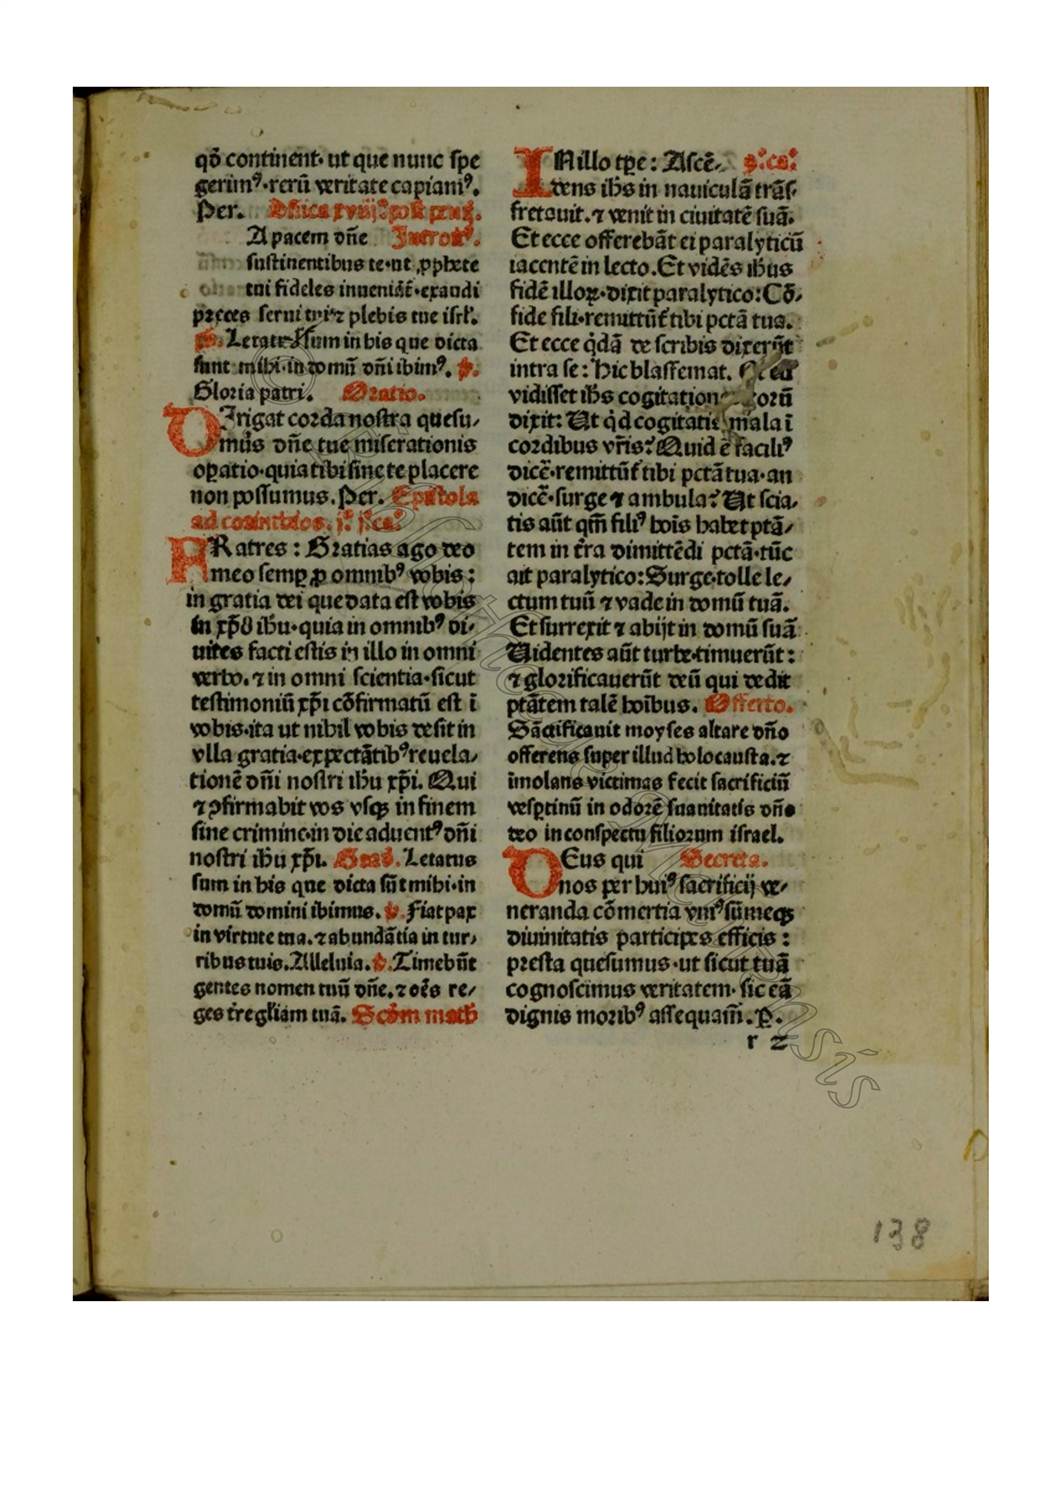 qd̄ continent· ut que nunc spe
gerimꝰ·rerū veritate capiamꝰ.
Per. Dñica xviij. post
A pacem dñe Introitꝰ.
sustinentibus te·ut ꝓphete
tui fideles inueniāt̄·exaudi
preces serui tui ⁊ plebis tue isrl̓.
p̄. Letatꝰ sum in his que dicta
sunt mihi·in domū dñi ibimꝰ. v̄.
Gloria patri. Oratio.
DIrigat corda nostra quesu/
mus dñe tue miserationis
oꝑatio·quia tibi sine te placere
non possumus. Per. Epistola
ad corinthios. j. j. ca.
FRatres : Gratias ago deo
meo semꝑ ꝓ omnibꝰ vobis :
in gratia dei que data est vobis
in xp̄o ihū·quia in omnibꝰ di/
uites facti estis in illo in omni
verbo. ⁊ in omni scientia·sicut
testimoniū xp̄i cōfirmatū est ī
vobis·ita ut nihil vobis desit in
vlla gratia·expectātibꝰ reuela/
tionē dñi nostri ihū xp̄i. Qui
⁊ ꝯfirmabit vos vsqꝫ in finem
sine crimine·in die aduentꝰ dñi
nostri ihū xp̄i. Grad. Letatus
sum in his que dicta sūt mihi·in
domū domini ibimus. v̄. Fiat pax
in virtute tua. ⁊ abundātia in tur/
ribus tuis. Alleluia. v̄. Timebūt
gentes nomen tuū dñe. ⁊ oēs re/
ges t̄re gl̄iam tuā. Scd̄m math
IN illo tꝑe : Ascē/ ix. ca.
dens ihs in nauiculā trās/
fretauit. ⁊ venit in ciuitatē suā.
Et ecce offerebāt ei paralyticū
iacentē in lecto. Et vidēs ihūs
fidē illoꝝ·dixit paralytico : Cō/
fide fili·remittūt̄ tibi pctā tua.
Et ecce qdā de scribis dixerūt
intra se : hic blasfemat.
vidisset ihs cogitationes eorū
dixit : Ut qd cogitatis mala ī
cordibus vr̄is? Quid ē faciliꝰ
dicē̄·remittūt̄ tibi pctā tua·an
dicē̄·surge ⁊ ambula? Ut scia/
tis aūt qm̄ filiꝰ hoīs habet ptā/
tem in t̄ra dimittēdi pctā·tūc
ait paralytico : Surge·tolle le/
ctum tuū ⁊ vade in domū tuā.
Et surrexit ⁊ abijt in domū suā
Uidentes aūt turbe·timuerūt :
⁊ glorificauerūt deū qui dedit
ptātem talē hoībus. Offerto.
Sāctificauit moyses altare dño
offerens super illud holocausta. ⁊
īmolans victimas fecit sacrificiū
vesꝑtinū in odorē suauitatis dño
deo in conspectu filiorum israel.
DEus qui Secreta.
nos per huiꝰ sacrificij ve/
neranda cōmertia vniꝰ sūmeqꝫ
diuinitatis participes efficis :
presta quesumus·ut sicut tuā
cognoscimus veritatem· sic eā
dignis moribꝰ assequam̄. P.
r 2
138